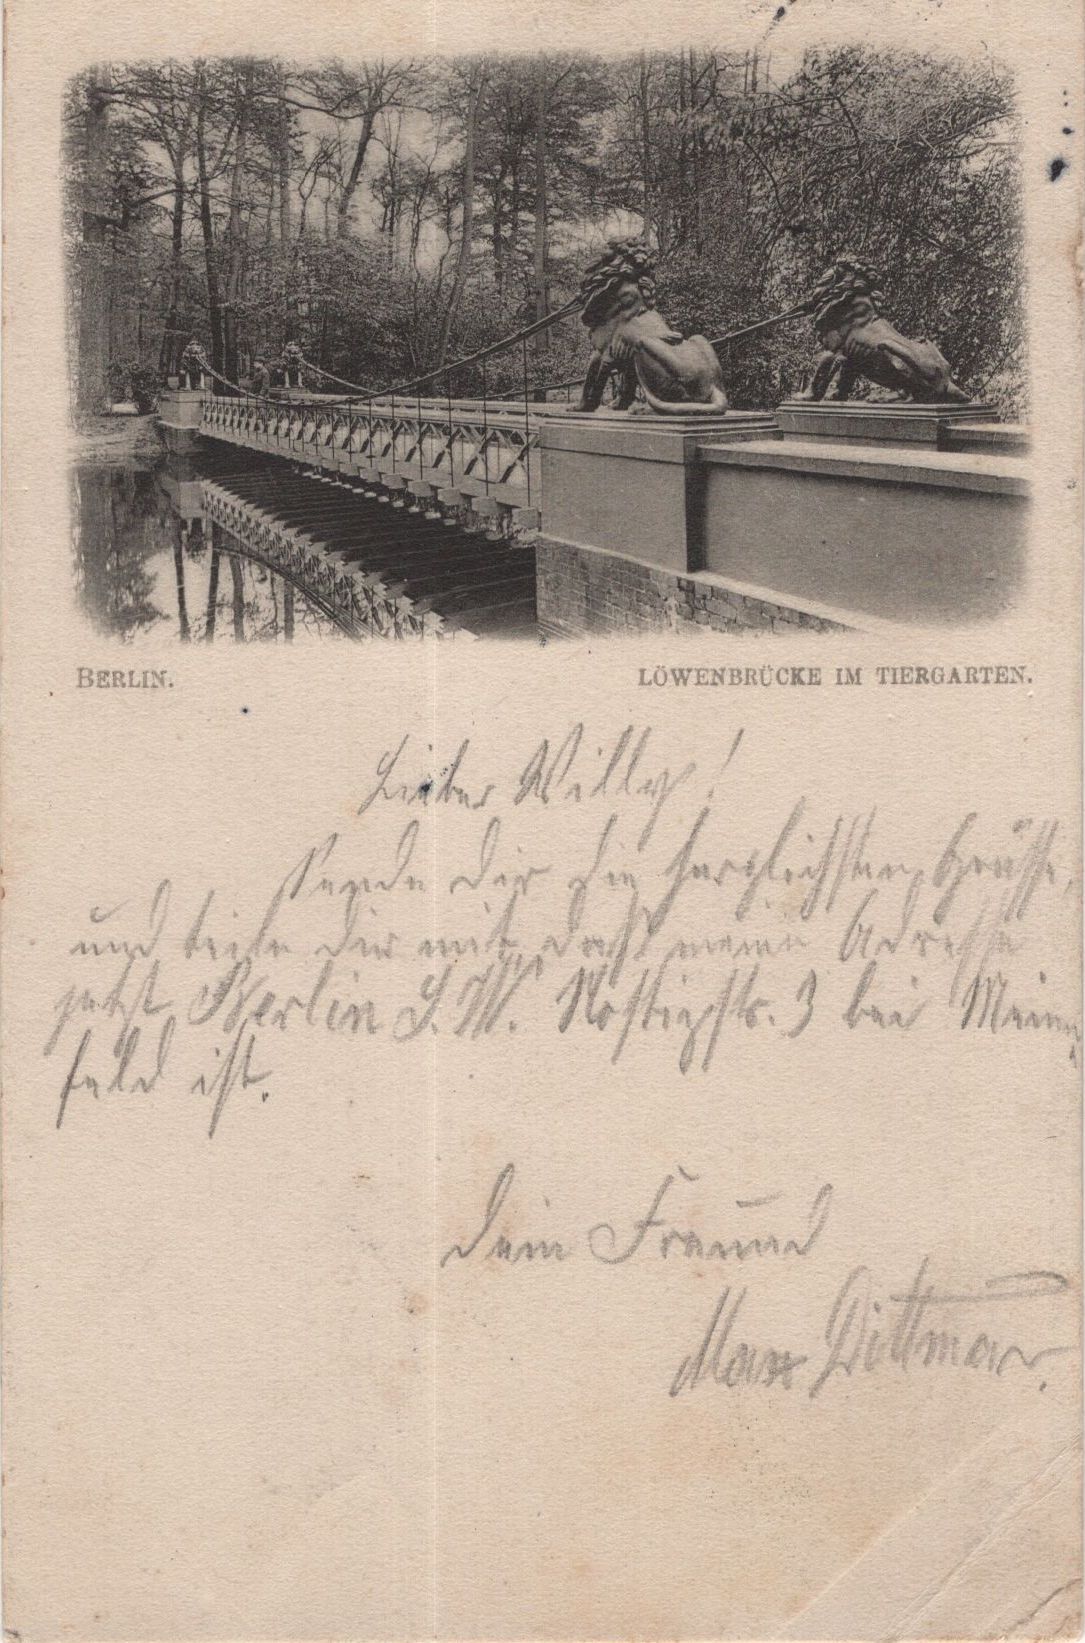 BERLIN.
LÖWENBRÜCKE IM TIERGARTEN.
Lieber Willy!
Sende Dir die herzlichsten Grüsse,
und teile Dir mit, dass meine Adresse
jetzt Berlin S.W. Nostizstr. 3 bei Meine
feld ist.
Dein Freund
Max Dittmar.